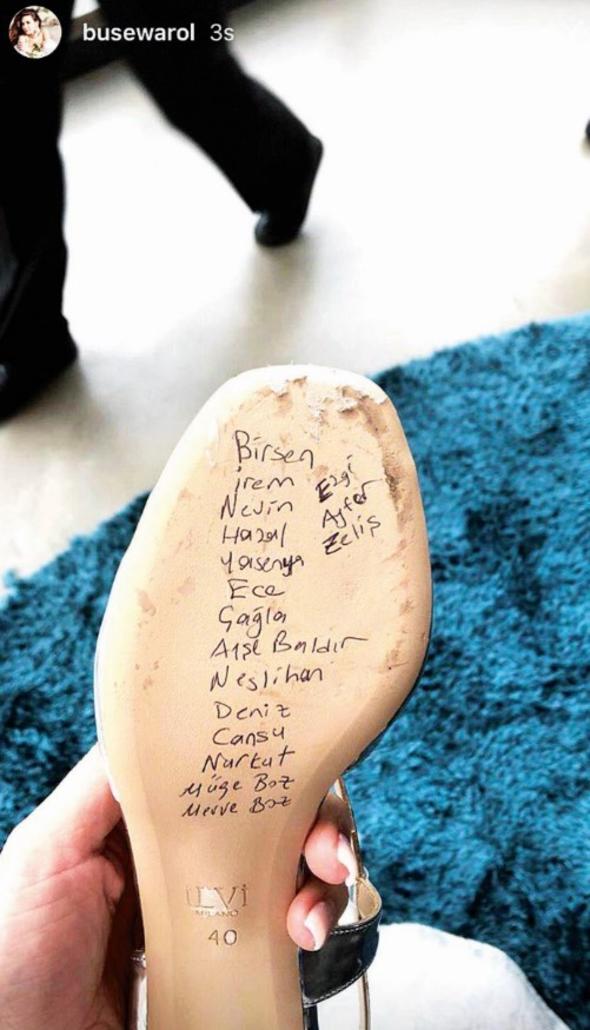 busewarol 3s
Birsen
irem
Nevin
Hazal
Yasenya
Ece
Çağla
Ayşe Baldır
Neslihan
Deniz
Cansu
Nurkut
Müge Boz
Merve Boz
Ezgi
Ayfer
Zeliş
iLVi
MILANO
40